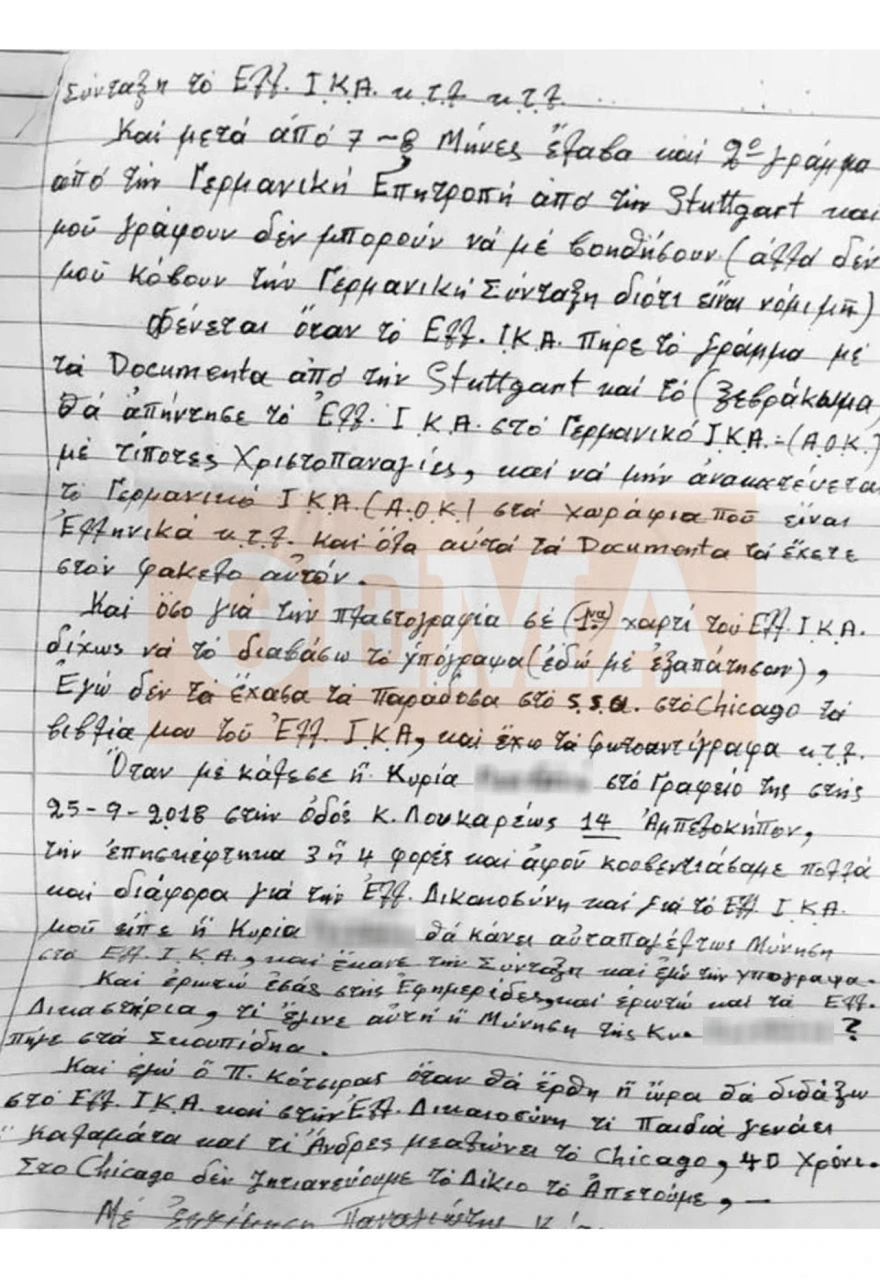 Σύνταξη τό Ελλ. Ι.Κ.Α. κ.τ.λ κ.τ.λ.
Καί μετά από 7-8 Μήνες ἔλαβα καί 2ο γράμμα
από τήν Γερμανική Επητροπή από τήν Stuttgart καί
μοῦ γράφουν δέν μπορούν νά μέ βοηθήσουν (αλλά δέν
μοῦ κόβουν τήν Γερμανική Σύνταξη διότι εἶναι νόμιμη)
Φένεται ὅταν τό Ελλ. Ι.Κ.Α. πήρε τό γράμμα μέ
τά Documenta από τήν Stuttgart καί τό (ξεβράκωμα)
θά ἀπήντησε τό Ἐλλ. Ι.Κ.Α. στό Γερμανικό Ι.Κ.Α.-(Α.Ο.Κ.)
μέ τίποτες Χριστοπαναγίες, καί νά μήν ἀνακατέυεται
τό Γερμανικό Ι.Κ.Α. (Α.Ο.Κ) στά χωράφια ποῦ εἶναι
Ἑλληνικά κ.τ.λ. καί ὅλα αὐτά τά Documenta τά ἔχετε
στόν φακελο αὐτόν.
Καί ὅσο γιά τήν πλαστογραφία σέ (1να) χαρτί τοῦ Ελλ. Ι.Κ.Α.
δίχως νά τό διαβάσω τό ὑπόγραψα (ἐδώ μέ ἐξαπάτησαν),
Ἐγώ δέν τά ἔχασα τά παράδοσα στό s.s.a. στό Chicago τά
βιβλία μου τοῦ Ἐλλ. Ι.Κ.Α, καί ἔχω τά φωτοαντίγραφα κ.τ.λ.
Ὅταν μέ κάλεσε ἡ Κυρία στό Γραφείο της στής
25-9-2018 στήν ὁδός Κ. Λουκαρέως 14 Ἀμπελοκήπον,
τήν ἐπησκέφτηκα 3 ἤ 4 φορές καί ἀφοῦ κουβεντιάσαμε πολλά
καί διάφορα γιά τήν Ἐλλ. Δικαιοσύνη καί γιά τό Ελλ Ι.Κ.Α.
μοῦ εἶπε ἡ Κυρία θά κάνει αὐταπαγέλτως Μύνηση
στό Ελλ. Ι.Κ.Α., καί ἔκανε τήν Σύνταξη καί ἐγώ τήν ὑπογραψα.
Καί ἐρωτώ ἐσάς στής Ἐφημερίδες, καί ἐρωτώ καί τά Ελλ.
Δικαστήρια, τί ἔγινε αὐτή ἡ Μύνηση τής Κυ. ?
πήγε στά Σκουπίδηα.
Καί ἐγώ ὁ Π. Κότσιρας ὅταν θά ἔρθη ἡ ὥρα θά διδάξω
στό Ελλ. Ι.Κ.Α. καί στήν Ἐλλ. Δικαιοσύνη τί παιδιά γενάει
ἡ Καλαμάτα καί τί Ἄνδρες μεαλώνει τό Chicago, 40 Χρόνι.
Στο Chicago δέν ζητιανεύουμε τό Δίκιο τό Ἀπετούμε, —
Μέ Παναγιώτης
ΘΕΜΑ